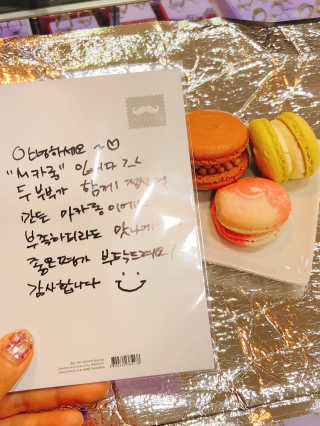 안녕하세요 ~♡
"M카롱" 입니다 ㄱㄴ
두 부부가 함께
만든 마카롱이에
부족하더라도 맛나게
좋은평가 부탁드려요!
감사합니다